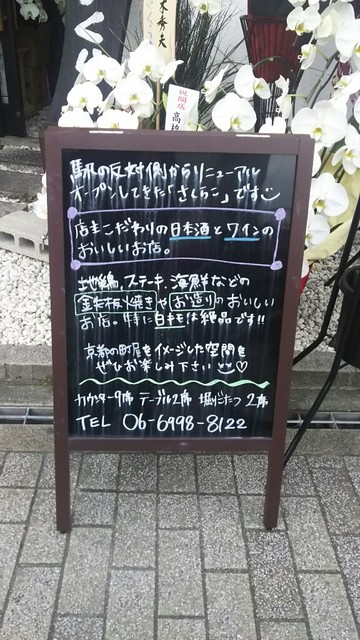 くり
木秀夫
祝開店
高
駅の反対側からリニューアル
オープンしてきた「さくらこ」です
店主こだわりの日本酒とワインの
おいしいお店。
土地鶏、ステーキ、海鮮などの
鉄板焼きやお造りのおいしい
お店。特に は絶品です!!
京都の町屋をイメージした空間を
ぜひお楽しみ下さい ♡
カウンター9席 テーブル2席 堀りごたつ 2席
TEL 06-6998-8122